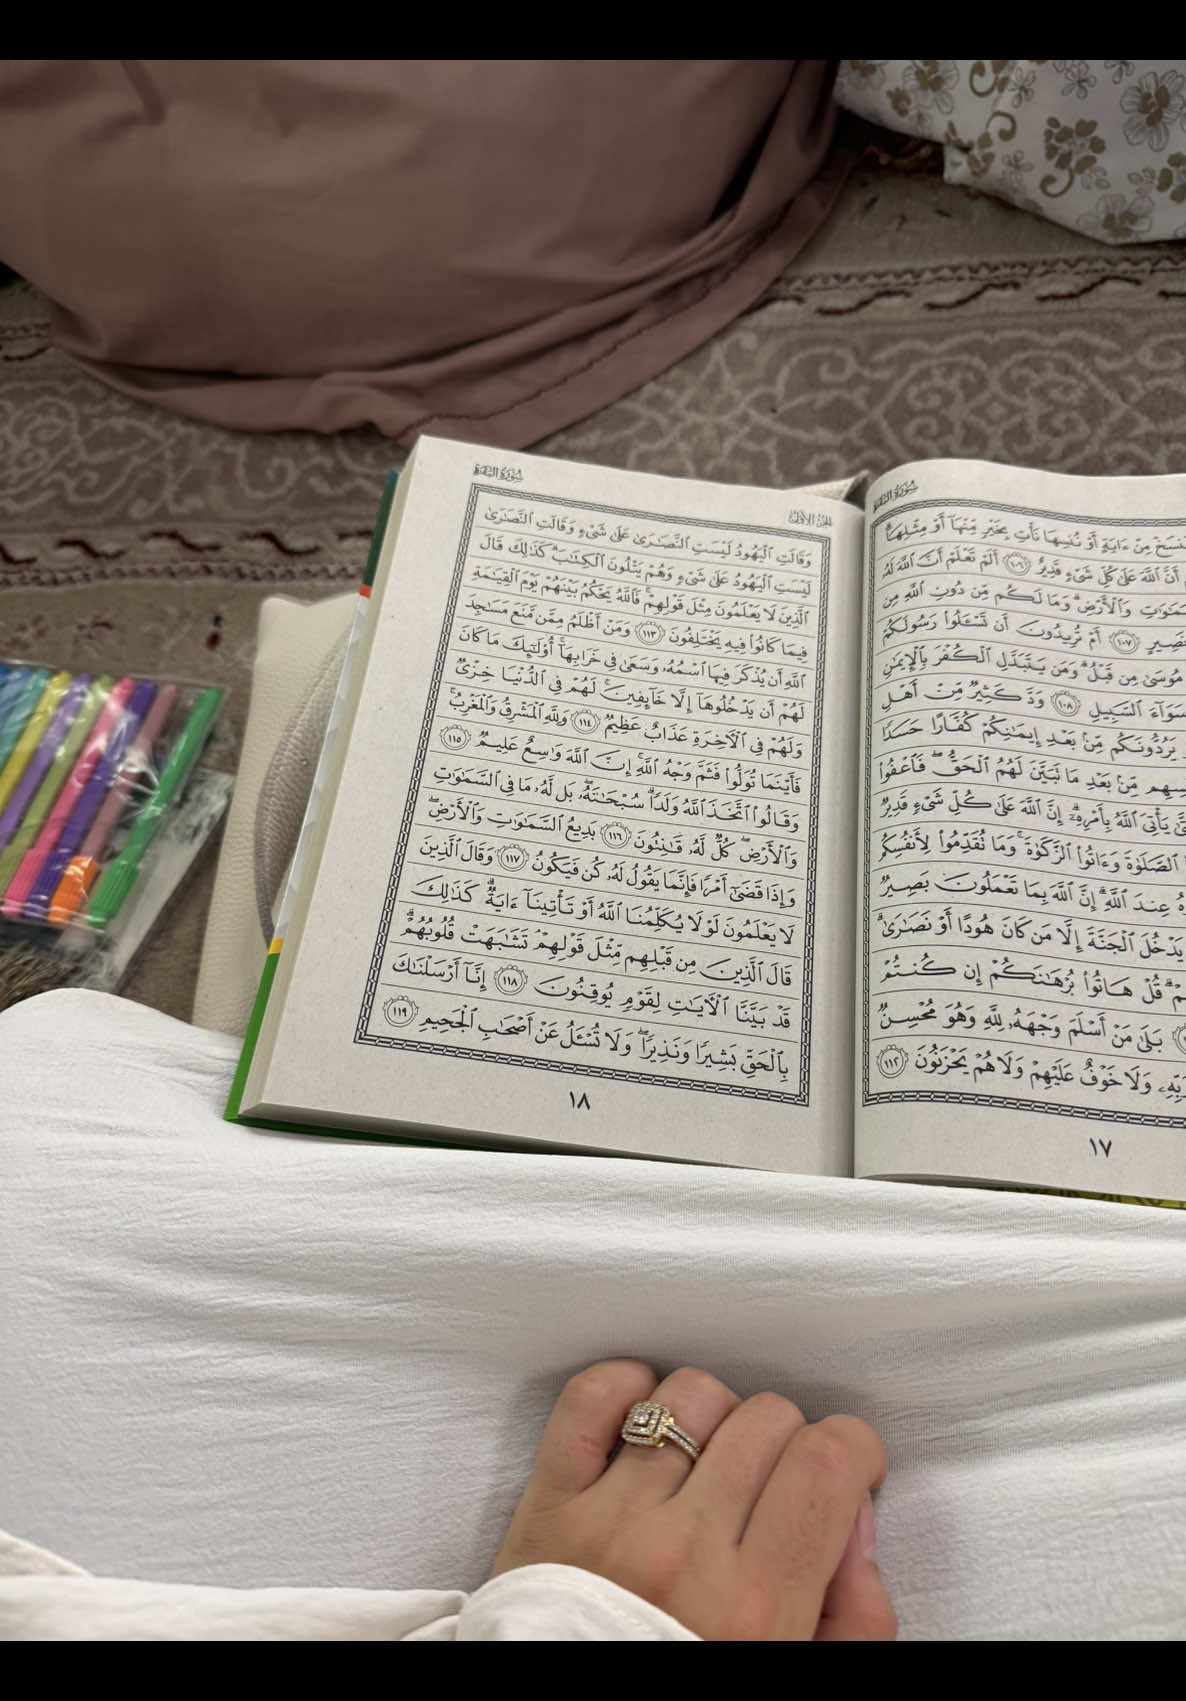 سُورَةُ البَقَرَةِ
نَنسَخْ مِنْ ءَايَةٍ أَوْ نُنسِهَا نَأْتِ بِخَيْرٍ مِّنْهَآ أَوْ مِثْلِهَآۗ
أَنَّ ٱللَّهَ عَلَىٰ كُلِّ شَىْءٍ قَدِيرٌ ١٠٦ أَلَمْ تَعْلَمْ أَنَّ ٱللَّهَ لَهُۥ
وَٱلْأَرْضِۗ وَمَا لَكُم مِّن دُونِ ٱللَّهِ مِن
نَصِيرٍ ١٠٧ أَمْ تُرِيدُونَ أَن تَسْـَٔلُوا۟ رَسُولَكُمْ
مُوسَىٰ مِن قَبْلُۗ وَمَن يَتَبَدَّلِ ٱلْكُفْرَ بِٱلْإِيمَـٰنِ
سَوَآءَ ٱلسَّبِيلِ ١٠٨ وَدَّ كَثِيرٌ مِّنْ أَهْلِ
يَرُدُّونَكُم مِّنۢ بَعْدِ إِيمَـٰنِكُمْ كُفَّارًا حَسَدًا
مِّنۢ بَعْدِ مَا تَبَيَّنَ لَهُمُ ٱلْحَقُّۖ فَٱعْفُوا۟
يَأْتِىَ ٱللَّهُ بِأَمْرِهِۦٓۗ إِنَّ ٱللَّهَ عَلَىٰ كُلِّ شَىْءٍ قَدِيرٌ
ٱلصَّلَوٰةَ وَءَاتُوا۟ ٱلزَّكَوٰةَۚ وَمَا تُقَدِّمُوا۟ لِأَنفُسِكُم
عِندَ ٱللَّهِۗ إِنَّ ٱللَّهَ بِمَا تَعْمَلُونَ بَصِيرٌ
يَدْخُلَ ٱلْجَنَّةَ إِلَّا مَن كَانَ هُودًا أَوْ نَصَـٰرَىٰۗ
قُلْ هَاتُوا۟ بُرْهَـٰنَكُمْ إِن كُنتُمْ
بَلَىٰ مَنْ أَسْلَمَ وَجْهَهُۥ لِلَّهِ وَهُوَ مُحْسِنٌ
رَبِّهِۦ وَلَا خَوْفٌ عَلَيْهِمْ وَلَا هُمْ يَحْزَنُونَ ١١٢
١٧
الجُزْءُ الأَوَّلُ
سُورَةُ البَقَرَةِ
وَقَالَتِ ٱلْيَهُودُ لَيْسَتِ ٱلنَّصَـٰرَىٰ عَلَىٰ شَىْءٍ وَقَالَتِ ٱلنَّصَـٰرَىٰ
لَيْسَتِ ٱلْيَهُودُ عَلَىٰ شَىْءٍ وَهُمْ يَتْلُونَ ٱلْكِتَـٰبَۗ كَذَٰلِكَ قَالَ
ٱلَّذِينَ لَا يَعْلَمُونَ مِثْلَ قَوْلِهِمْۚ فَٱللَّهُ يَحْكُمُ بَيْنَهُمْ يَوْمَ ٱلْقِيَـٰمَةِ
فِيمَا كَانُوا۟ فِيهِ يَخْتَلِفُونَ ١١٣ وَمَنْ أَظْلَمُ مِمَّن مَّنَعَ مَسَـٰجِدَ
ٱللَّهِ أَن يُذْكَرَ فِيهَا ٱسْمُهُۥ وَسَعَىٰ فِى خَرَابِهَآۚ أُو۟لَـٰٓئِكَ مَا كَانَ
لَهُمْ أَن يَدْخُلُوهَآ إِلَّا خَآئِفِينَۚ لَهُمْ فِى ٱلدُّنْيَا خِزْىٌ
وَلَهُمْ فِى ٱلْـَٔاخِرَةِ عَذَابٌ عَظِيمٌ ١١٤ وَلِلَّهِ ٱلْمَشْرِقُ وَٱلْمَغْرِبُۚ
فَأَيْنَمَا تُوَلُّوا۟ فَثَمَّ وَجْهُ ٱللَّهِۚ إِنَّ ٱللَّهَ وَٰسِعٌ عَلِيمٌ ١١٥
وَقَالُوا۟ ٱتَّخَذَ ٱللَّهُ وَلَدًاۗ سُبْحَـٰنَهُۥۖ بَل لَّهُۥ مَا فِى ٱلسَّمَـٰوَٰتِ
وَٱلْأَرْضِۖ كُلٌّ لَّهُۥ قَـٰنِتُونَ ١١٦ بَدِيعُ ٱلسَّمَـٰوَٰتِ وَٱلْأَرْضِۖ
وَإِذَا قَضَىٰٓ أَمْرًا فَإِنَّمَا يَقُولُ لَهُۥ كُن فَيَكُونُ ١١٧ وَقَالَ ٱلَّذِينَ
لَا يَعْلَمُونَ لَوْلَا يُكَلِّمُنَا ٱللَّهُ أَوْ تَأْتِينَآ ءَايَةٌۗ كَذَٰلِكَ
قَالَ ٱلَّذِينَ مِن قَبْلِهِم مِّثْلَ قَوْلِهِمْۘ تَشَـٰبَهَتْ قُلُوبُهُمْۗ
قَدْ بَيَّنَّا ٱلْـَٔايَـٰتِ لِقَوْمٍ يُوقِنُونَ ١١٨ إِنَّآ أَرْسَلْنَـٰكَ
بِٱلْحَقِّ بَشِيرًا وَنَذِيرًاۖ وَلَا تُسْـَٔلُ عَنْ أَصْحَـٰبِ ٱلْجَحِيمِ ١١٩
١٨